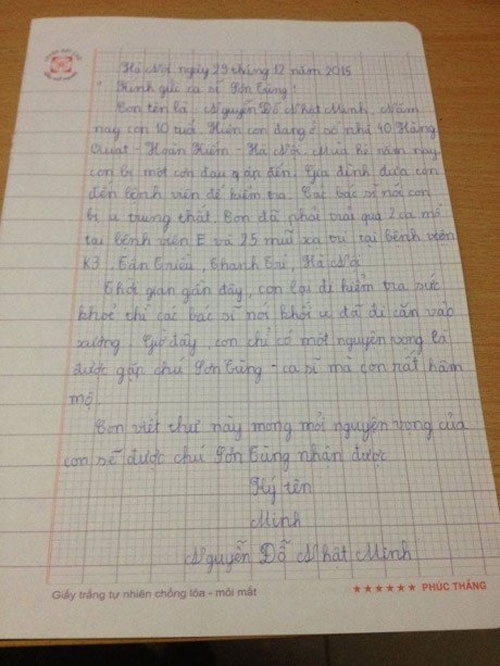 Hà Nội ngày 29 tháng 12 năm 2015
Kính gửi ca sĩ Sơn Tùng!
Con tên là: Nguyễn Đỗ Nhật Minh. Năm
nay con 10 tuổi. Hiện con đang ở số nhà 40 Hàng
Quạt - Hoàn Kiếm - Hà Nội. Mùa hè năm nay
con bị một cơn đau ập đến. Gia đình đưa con
đến bệnh viện để kiểm tra. Các bác sĩ nói con
bị u trung thất. Con đã phải trải qua 2 ca mổ
tại bệnh viện E và 25 mũi xạ trị tại bệnh viện
K3, Tân Triều, Thanh Trì, Hà Nội
Thời gian gần đây, con lại đi kiểm tra sức
khoẻ thì các bác sĩ nói khối u đã di căn vào
xương. Giờ đây, con chỉ có một nguyện vọng là
được gặp chú Sơn Tùng - ca sĩ mà con rất hâm
mộ.
Con viết thư này mong mỏi nguyện vọng của
con sẽ được chú Sơn Tùng nhận được
Ký tên
Minh
Nguyễn Đỗ Nhật Minh
Giấy trắng tự nhiên chống lóa - mỏi mắt ★★★★★★ PHÚC THẮNG